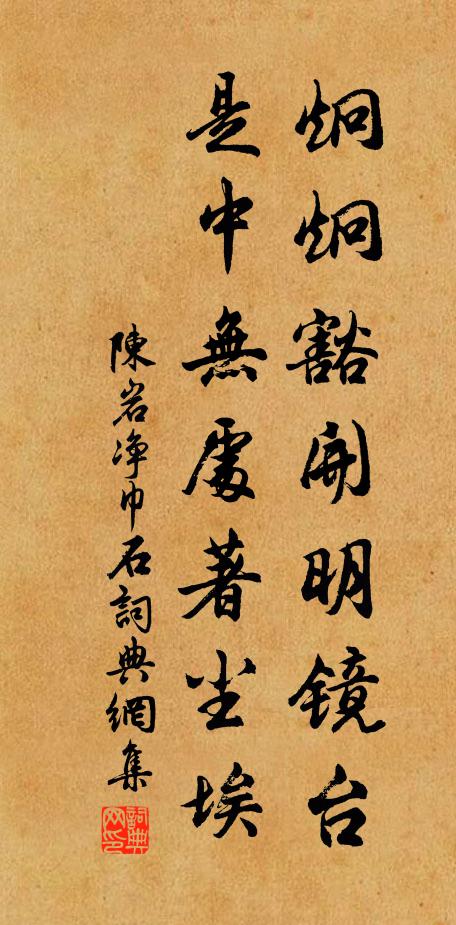 炯炯豁開明镜台
是中無處著尘埃
陳岩净巾石詞典網集
詞典网印